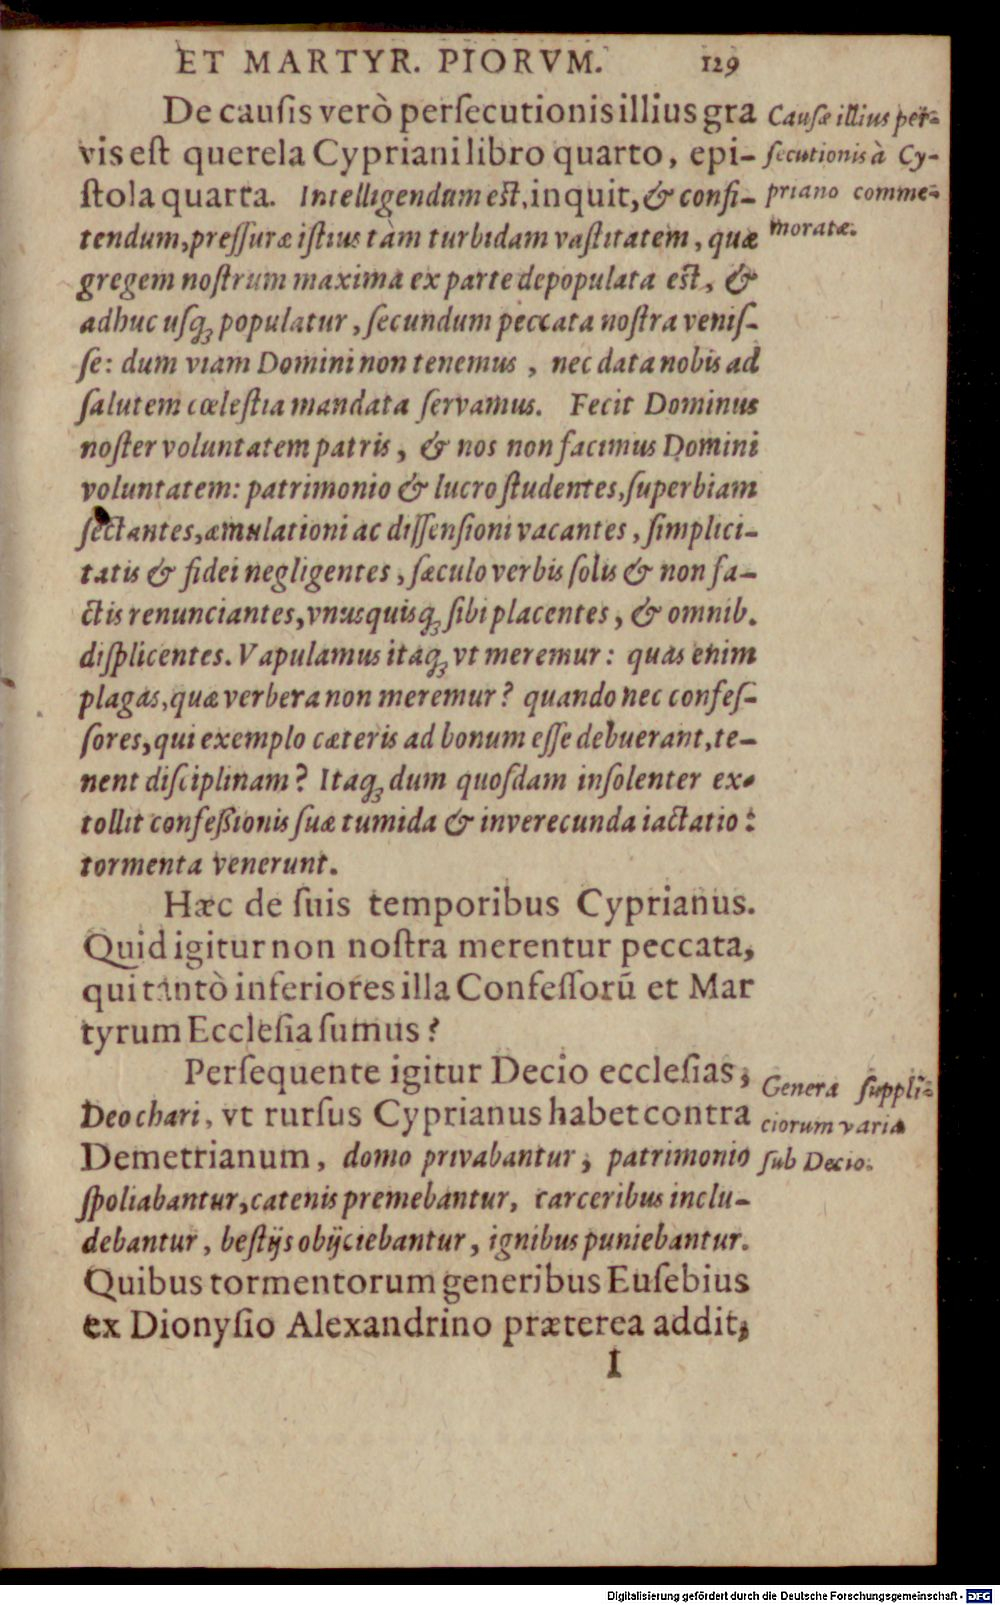 ET MARTYR. PIORVM. 129
De causis verò persecutionis illius gra
vis est querela Cypriani libro quarto, epi-
stola quarta. Intelligendum est, inquit, & confi-
tendum, pressuræ istius tàm turbidam vastitatem, quæ
gregem nostrum maxima ex parte depopulata est, &
adhuc usq; populatur, secundum peccata nostra venis-
se: dum viam Domini non tenemus, nec data nobis ad
salutem cœlestia mandata servamus. Fecit Dominus
noster voluntatem patris, & nos non facimus Domini
voluntatem: patrimonio & lucro studentes, superbiam
sectantes, æmulationi ac dissensioni vacantes, simplici-
tatis & fidei negligentes, sæculo verbis solis & non fa-
ctis renunciantes, vnusquisq; sibi placentes, & omnib.
displicentes. Vapulamus itaq; vt meremur: quas enim
plagas, quæ verbera non meremur? quando nec confes-
sores, qui exemplo cæteris ad bonum esse debuerant, te-
nent disciplinam? Itaq; dum quosdam insolenter ex-
tollit confessionis suæ tumida & inverecunda iactatio:
tormenta venerunt.
Causæ illius per-
secutionis à Cy-
priano comme-
moratæ.
Hæc de suis temporibus Cyprianus.
Quid igitur non nostra merentur peccata,
qui tantò inferiores illa Confessorū et Mar
tyrum Ecclesia sumus?
Persequente igitur Decio ecclesias,
Deo chari, vt rursus Cyprianus habet contra
Demetrianum, domo privabantur, patrimonio
spoliabantur, catenis premebantur, carceribus inclu-
debantur, bestijs obijciebantur, ignibus puniebantur.
Quibus tormentorum generibus Eusebius
ex Dionysio Alexandrino præterea addit,
Genera suppli-
ciorum varia
sub Decio.
I
Digitalisierung gefördert durch die Deutsche Forschungsgemeinschaft - DFG